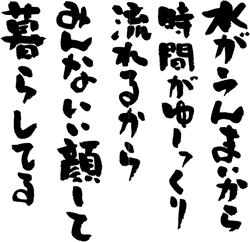 水がうんまいから
時間がゆーっくり
流れるから
みんないい顔して
暮らしてる